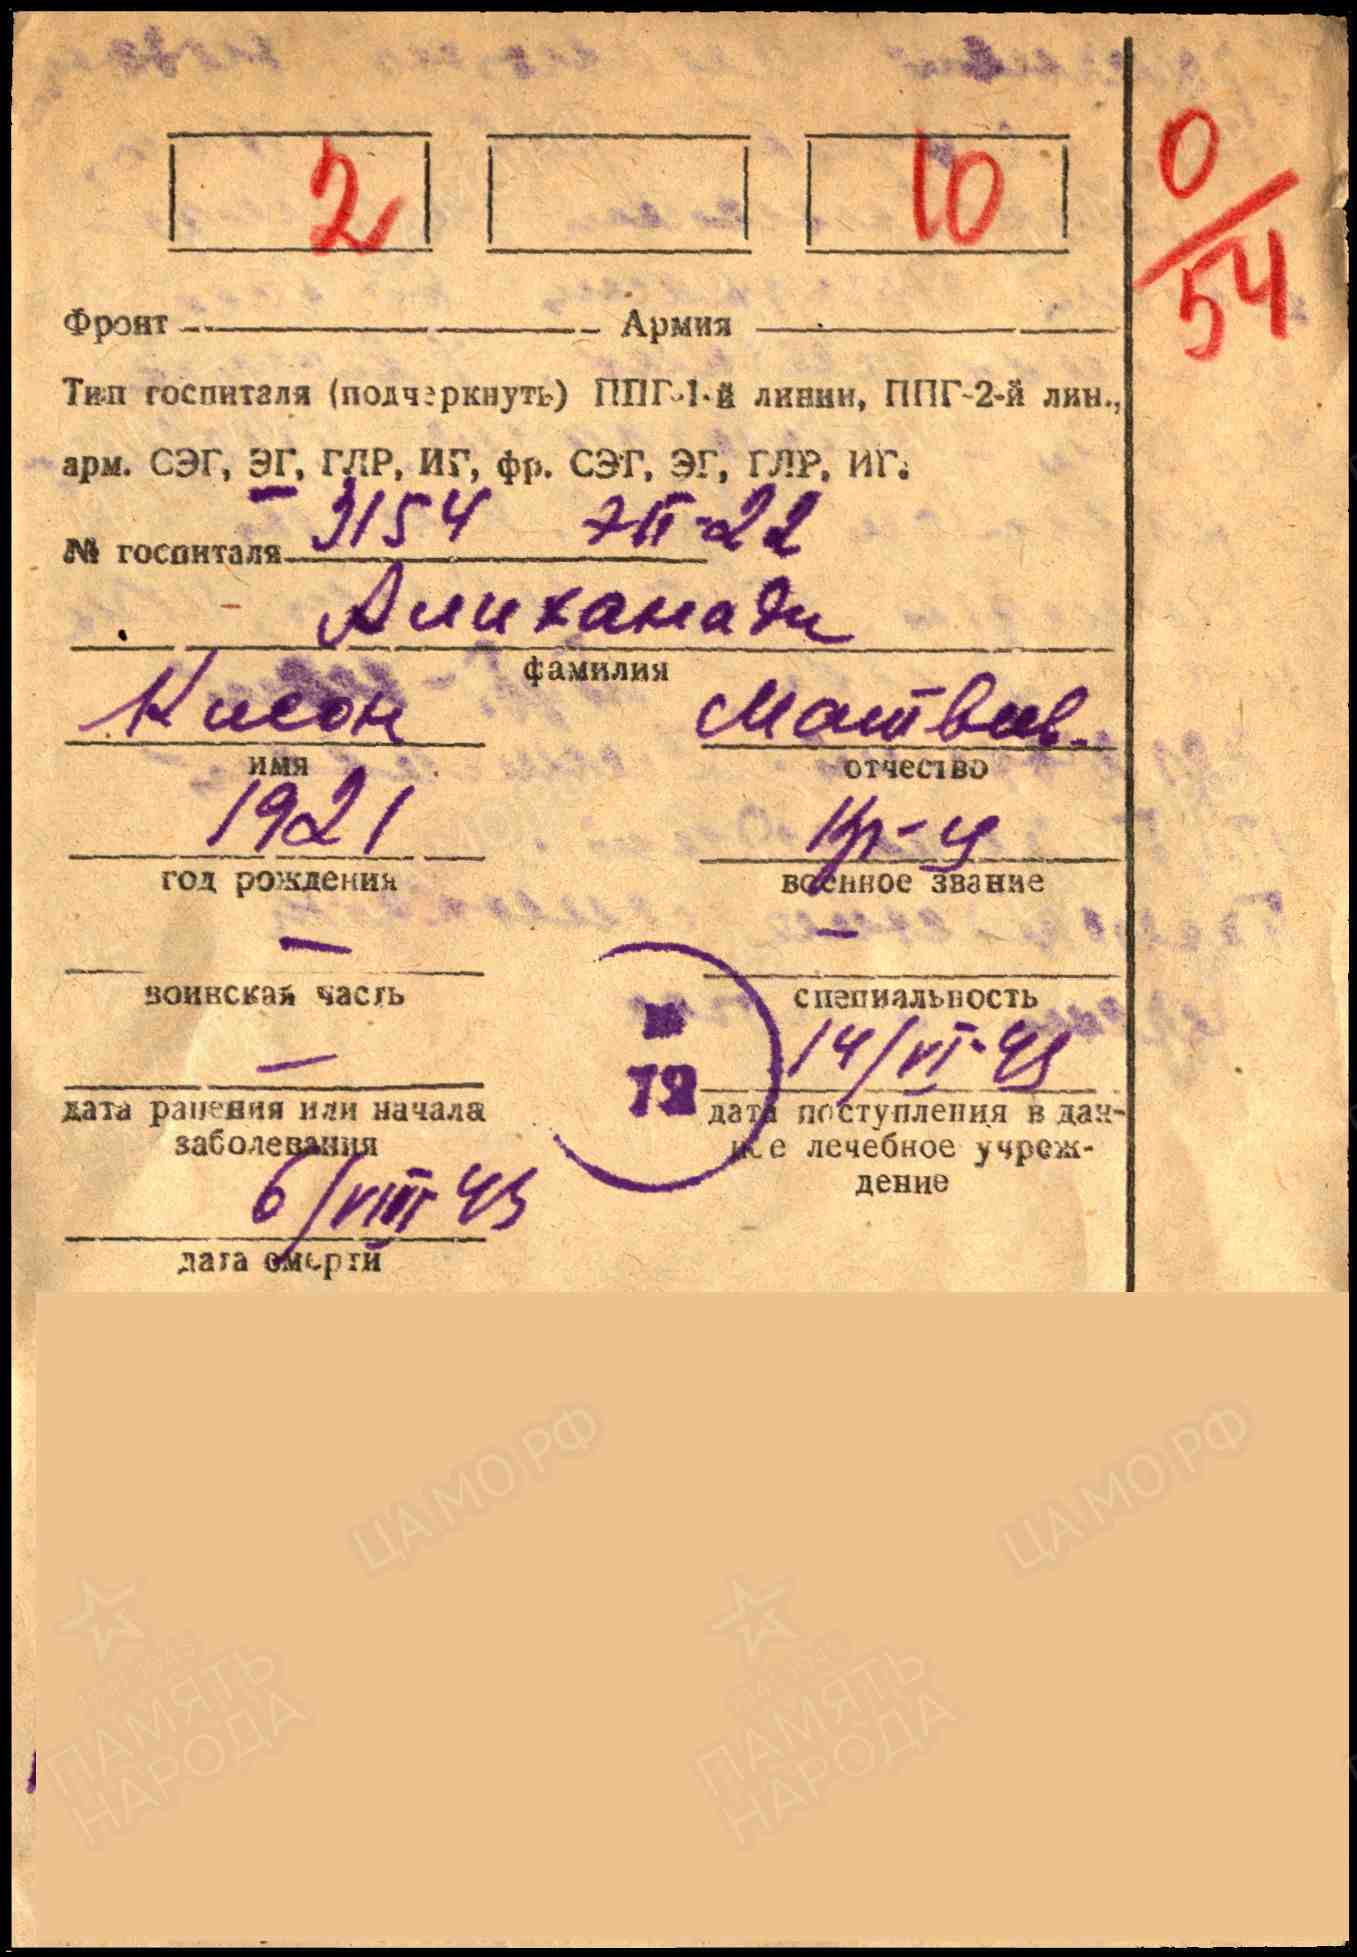 2 10 0/54
Фронт Армия
Тип госпиталя (подчеркнуть) ППГ-1-й линии, ППГ-2-й лин.,
арм. СЭГ, ЭГ, ГЛР, ИГ, фр. СЭГ, ЭГ, ГЛР, ИГ.
№ госпиталя 3154
фамилия
Кисон Матвеев.
имя отчество
1921 Кр-ц
год рождения военное звание
— —
воинская часть специальность
— 14/VI-43
дата ранения или начала дата поступления в дан-
заболевания ное лечебное учреж-
дение
6/VIII-43
дата смерти
ЦАМО.РФ ЦАМО.РФ
ПАМЯТЬ НАРОДА ПАМЯТЬ НАРОДА